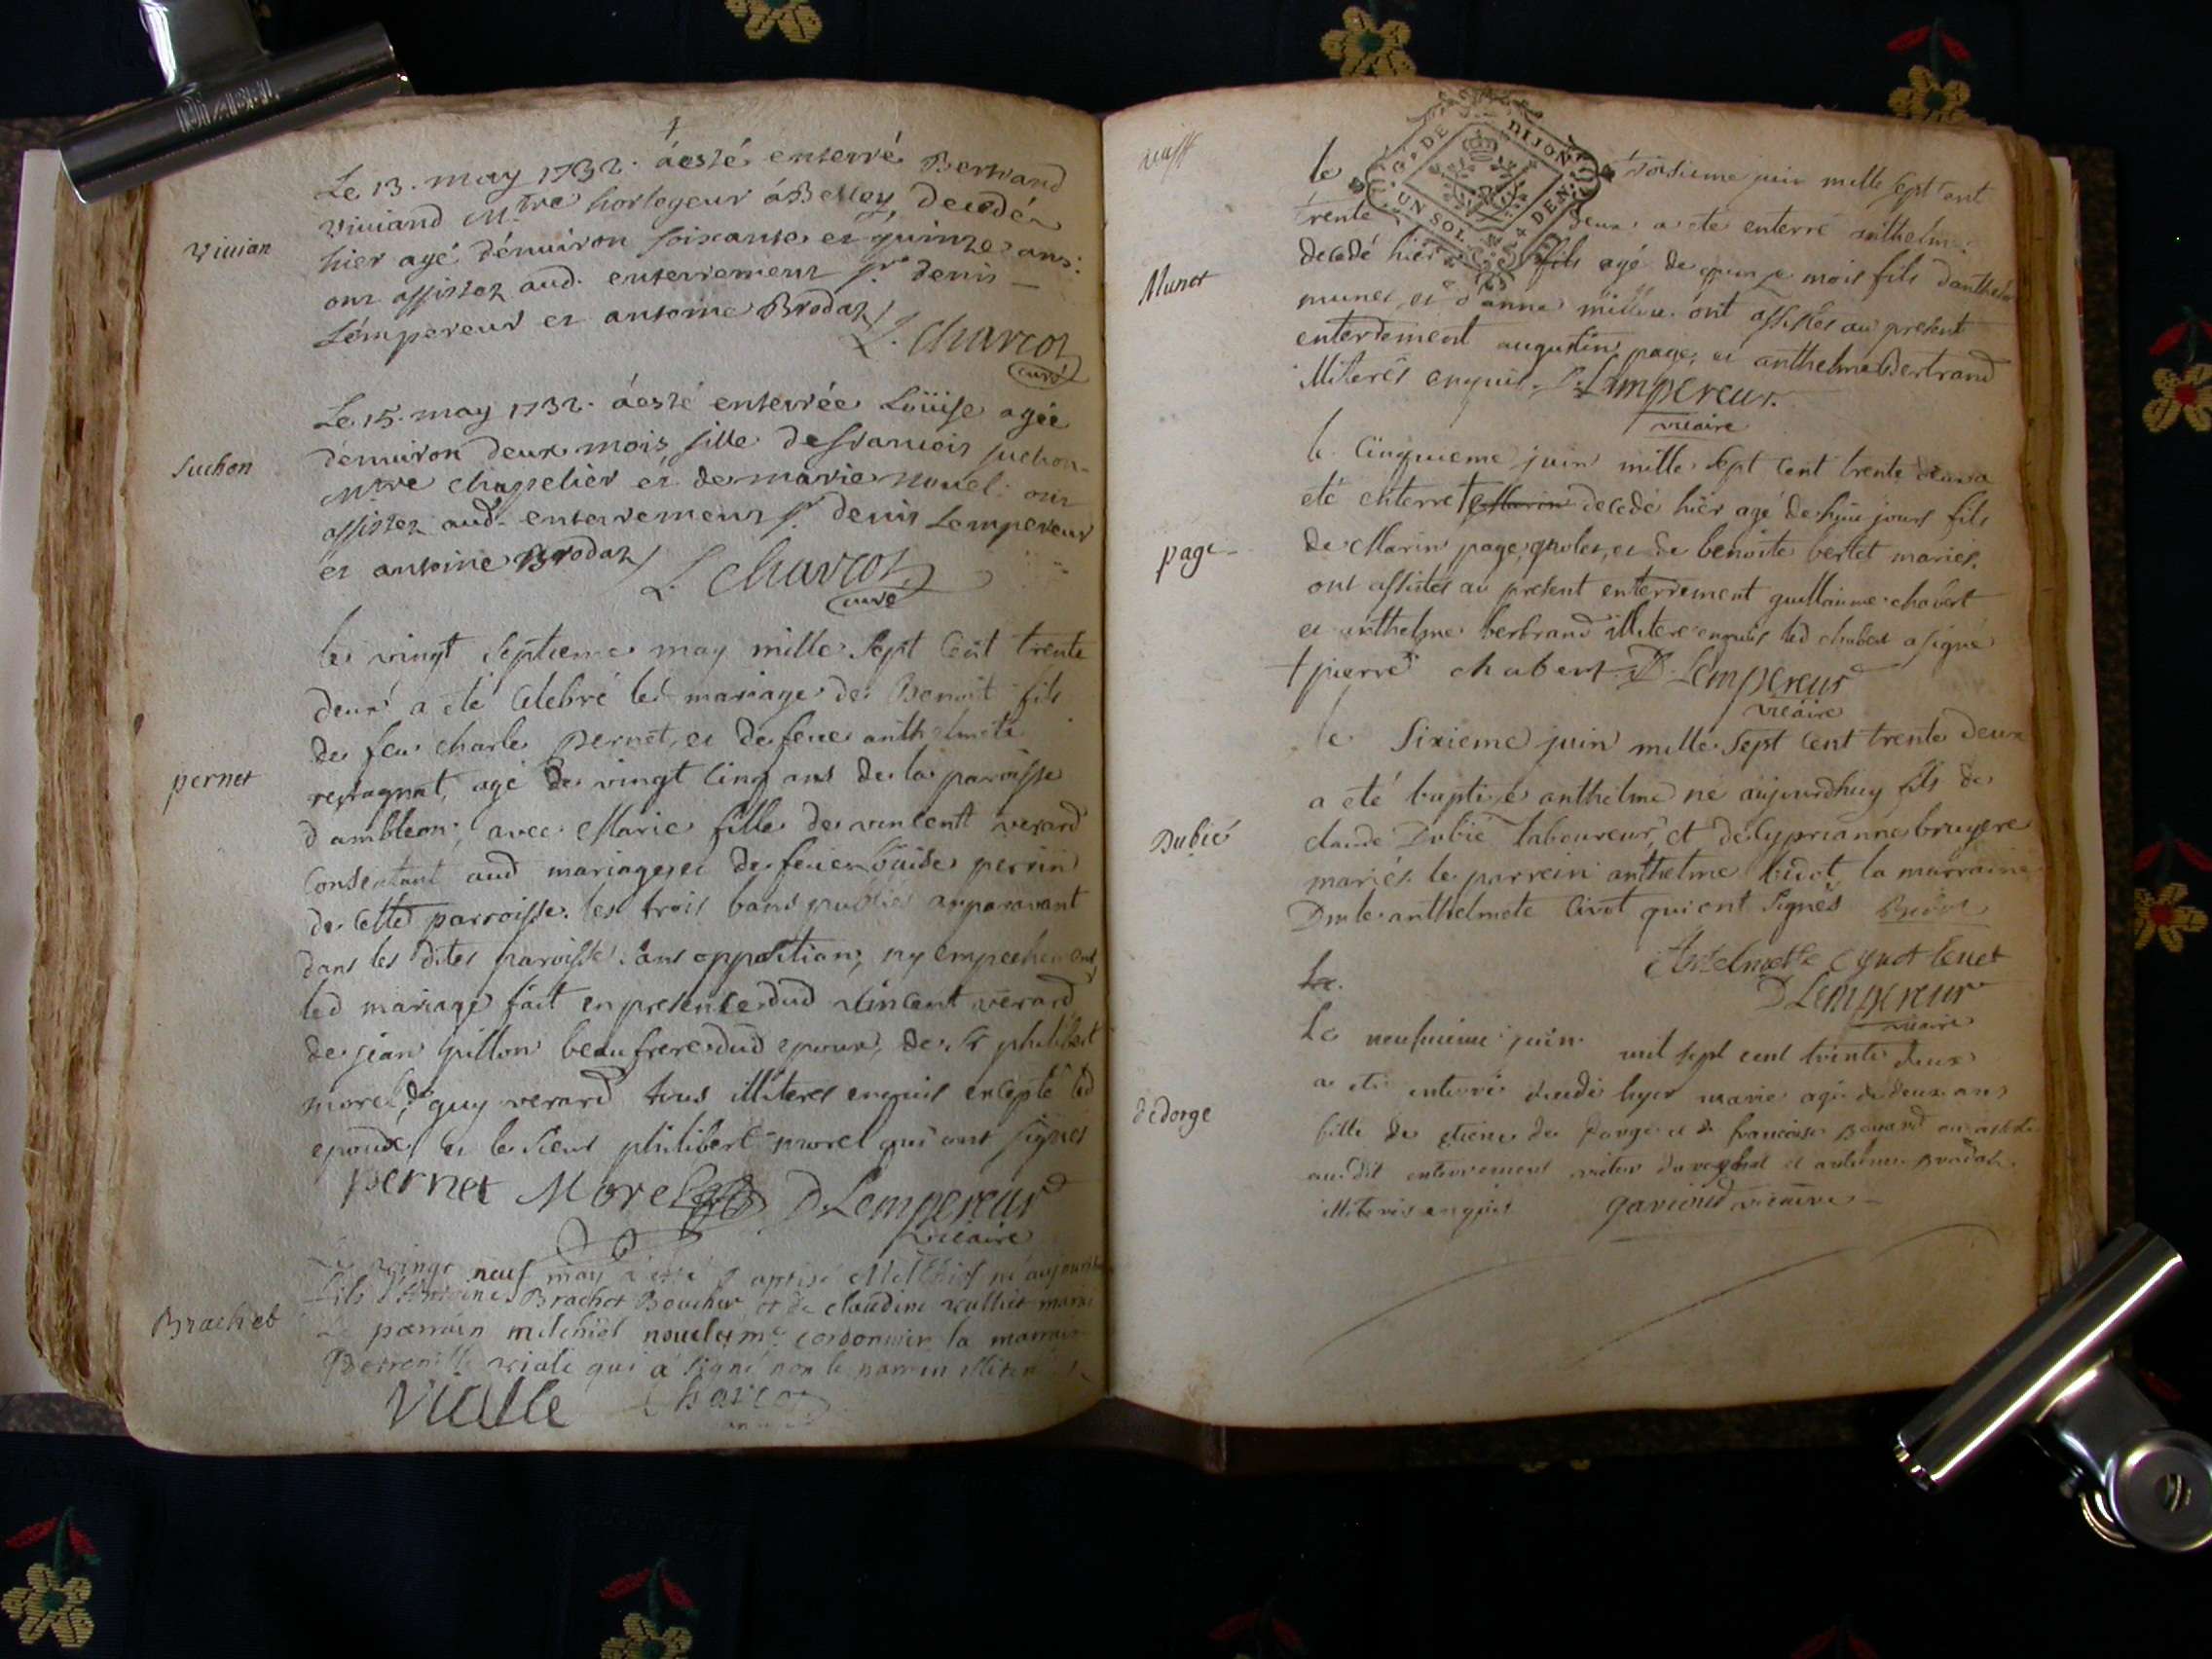 Le 13. may 1732. áesté enterré Bertrand
vivian
Viviand M.tre horlogeur á Belley, decedé
hier agé dénuiron soixante et quinze ans.
ont assistez aud. enterrement Sr. denis
Lempereur et antoine Brodaz/
L. Charcot
curé
Le 15. may 1732. áesté enterrée Loüise agée
suchon
dénuiron deux mois fille defrancois suchon
Mtre chapelier et de marie nouel. ont
assistez aud. enterrement Sr. denis Lempereur
et antoine Brodaz/
L. Charcot
curé
le vingt septieme may mille sept cent trente
deux a eté celebré led mariage de Benoit fils
de feu charle pernet, et de feue anthelmete
pernet
agé de vingt cinq ans de la paroisse
d'ambleon, avec Marie fille de vincent verard
consentant aud mariage, et de feue Loüise perrin
de cette parroisse. les trois bans publiés auparavant
dans les dites paroisse sans opposition, ny empechement
led mariage fait en presence dud vincent verard
de jean guillon beaufrere dud epoux, de Sr philibert
morel, de guy verard tous illiteres enquis excepté led
epoux et le sieur philibert morel qui ont signés
pernet Morel D. Lempereur
vicaire
Le vingt neuf may a esté baptisé Melchiot né aujourdhuy
fils d'Antoine Brachet Boucher et de claudine vulliet mariés
Brachet
Le parrain melchiot nouel me cordonnier la marraine
viale qui a signé non le parrain illiteré
vialle Charcot
neuf
G. DE DIJON
UN SOL 4 DEN.
le troisieme juin mille sept cent
trente deux a eté enterré anthelme
Munet
decedé hier fils agé de quinze mois fils d'anthelme
munet, et d'anne ont assistés au present
enterrement augustin page, et anthelme Bertrand
illiterés enquis. D. Lempereur
vicaire
le cinquieme juin mille sept cent trente deux a
eté enterré + Marin decedé hier agé de huit jours fils
page
de Marin page, et de benoite bertet mariés.
ont assistés au present enterrement guillaume chabert
et anthelme bertrand illitere enquis led chabert a signé
+ pierre chabert D. Lempereur
vicaire
le sixieme juin mille sept cent trente deux
a eté baptisé anthelme né aujourdhuy fils de
Dubié
claude Dubié laboureur, et de cyprianne bruyere
mariés. le parrein anthelme bidot la marraine
Dmle anthelmete Civot qui ont signés
Antelmette Cyvot
D Lempereur
vicaire
Le.
Le neufuieme juin mil sept cent trente deux
a eté enterré decedé hyer marie agée de deux ans
dedorge
fille de etiene de dorge et de francoise
audit enterrement et antoine Brodaz
illiterés enquis gariond vicaire